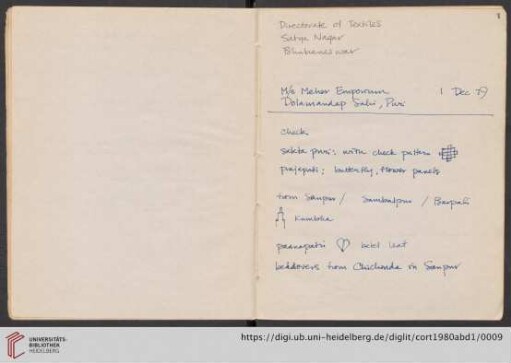 1
Directorate of Textiles
Satya Nagar
Bhubaneswar
M/s Meher Emporium 1 Dec 79
Dolamandap Sahi, Puri
check
sakta puri: with check pattern
prajapati: butterfly, flower panels
from Sonpur / Sambalpur / Barpali
Kumbha
paanapatri betel leaf
bedcovers from Chichonda in Sonpur
UNIVERSITÄTS-
BIBLIOTHEK
HEIDELBERG
https://digi.ub.uni-heidelberg.de/diglit/cort1980abd1/0009